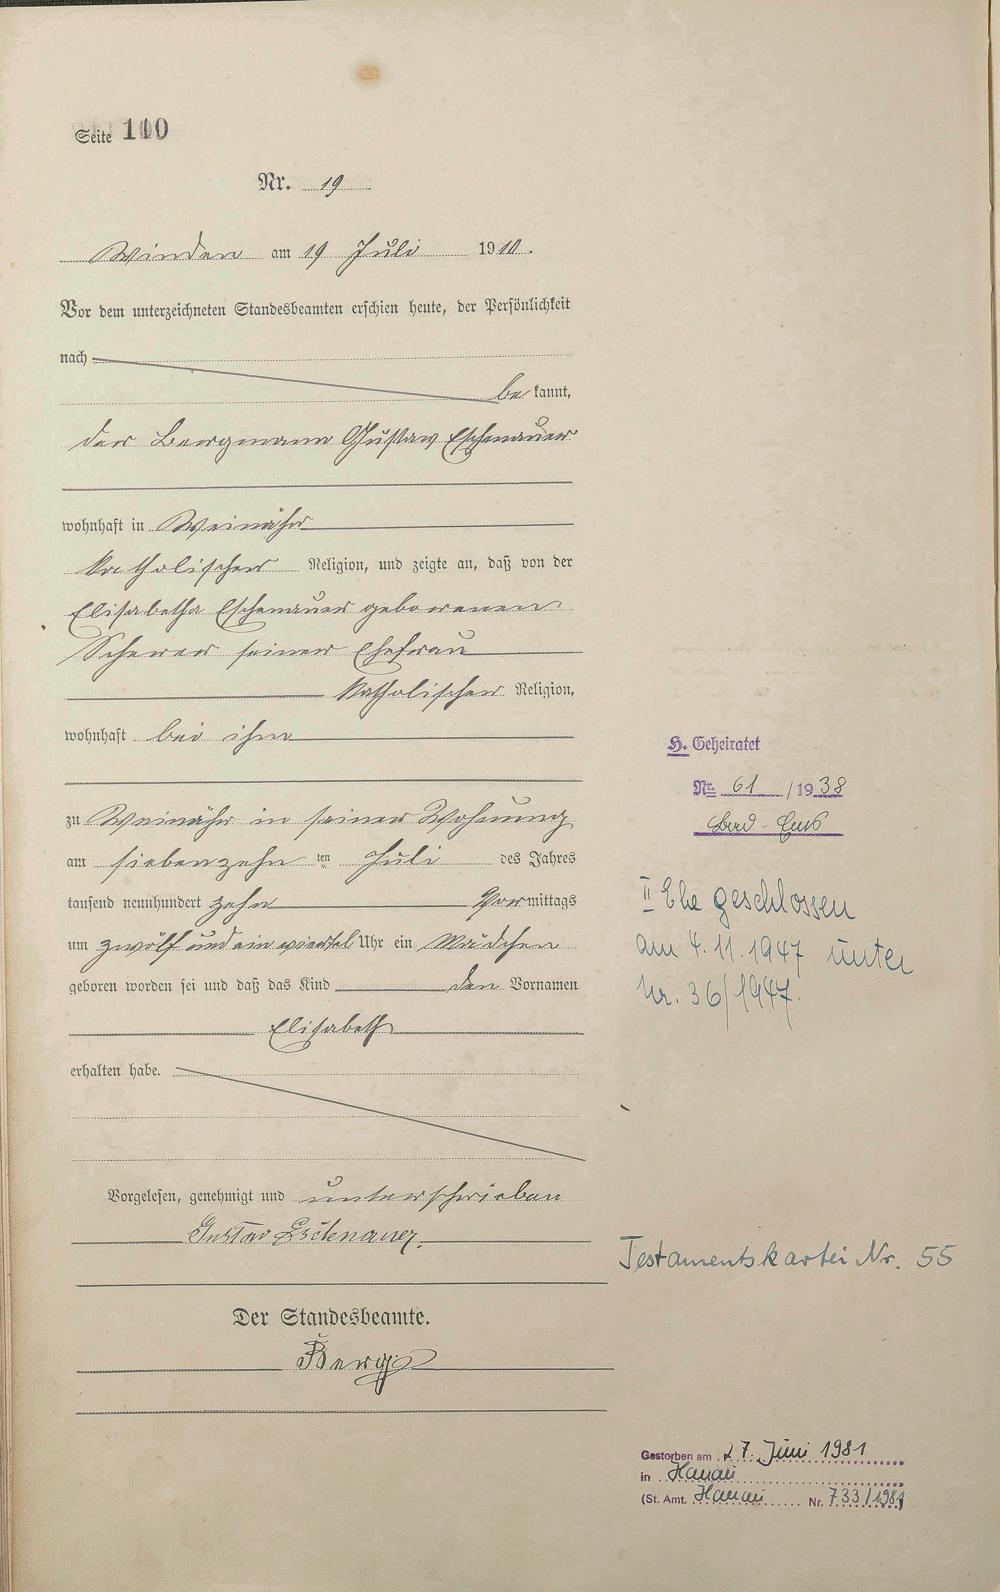 Seite 110
Nr. 19
Winden am 19 Juli 1910.
Vor dem unterzeichneten Standesbeamten erschien heute, der Persönlichkeit
nach
be kannt,
der Bergmann Gustav Eschenauer
wohnhaft in Weinähr
katholischer Religion, und zeigte an, daß von der
Elisabetha Eschenauer geborenen
Scherer seiner Ehefrau
katholischer Religion,
wohnhaft bei ihm
zu Weinähr in seiner Wohnung
am siebenzehn ten Juli des Jahres
tausend neunhundert zehn Vormittags
um zwölf und ein viertel Uhr ein Mädchen
geboren worden sei und daß das Kind den Vornamen
Elisabeth
erhalten habe.
Vorgelesen, genehmigt und unterschrieben
Gustav Eschenauer.
Der Standesbeamte.
Berg
H. Geheiratet
Nr. 61 / 1938
Bad-Ems
II Ehe geschlossen
am 4.11.1947 unter
Nr. 36/1947.
Testamentskartei Nr. 55
Gestorben am 27. Juni 1981
in Hanau
(St. Amt. Hanau Nr. 733/1981